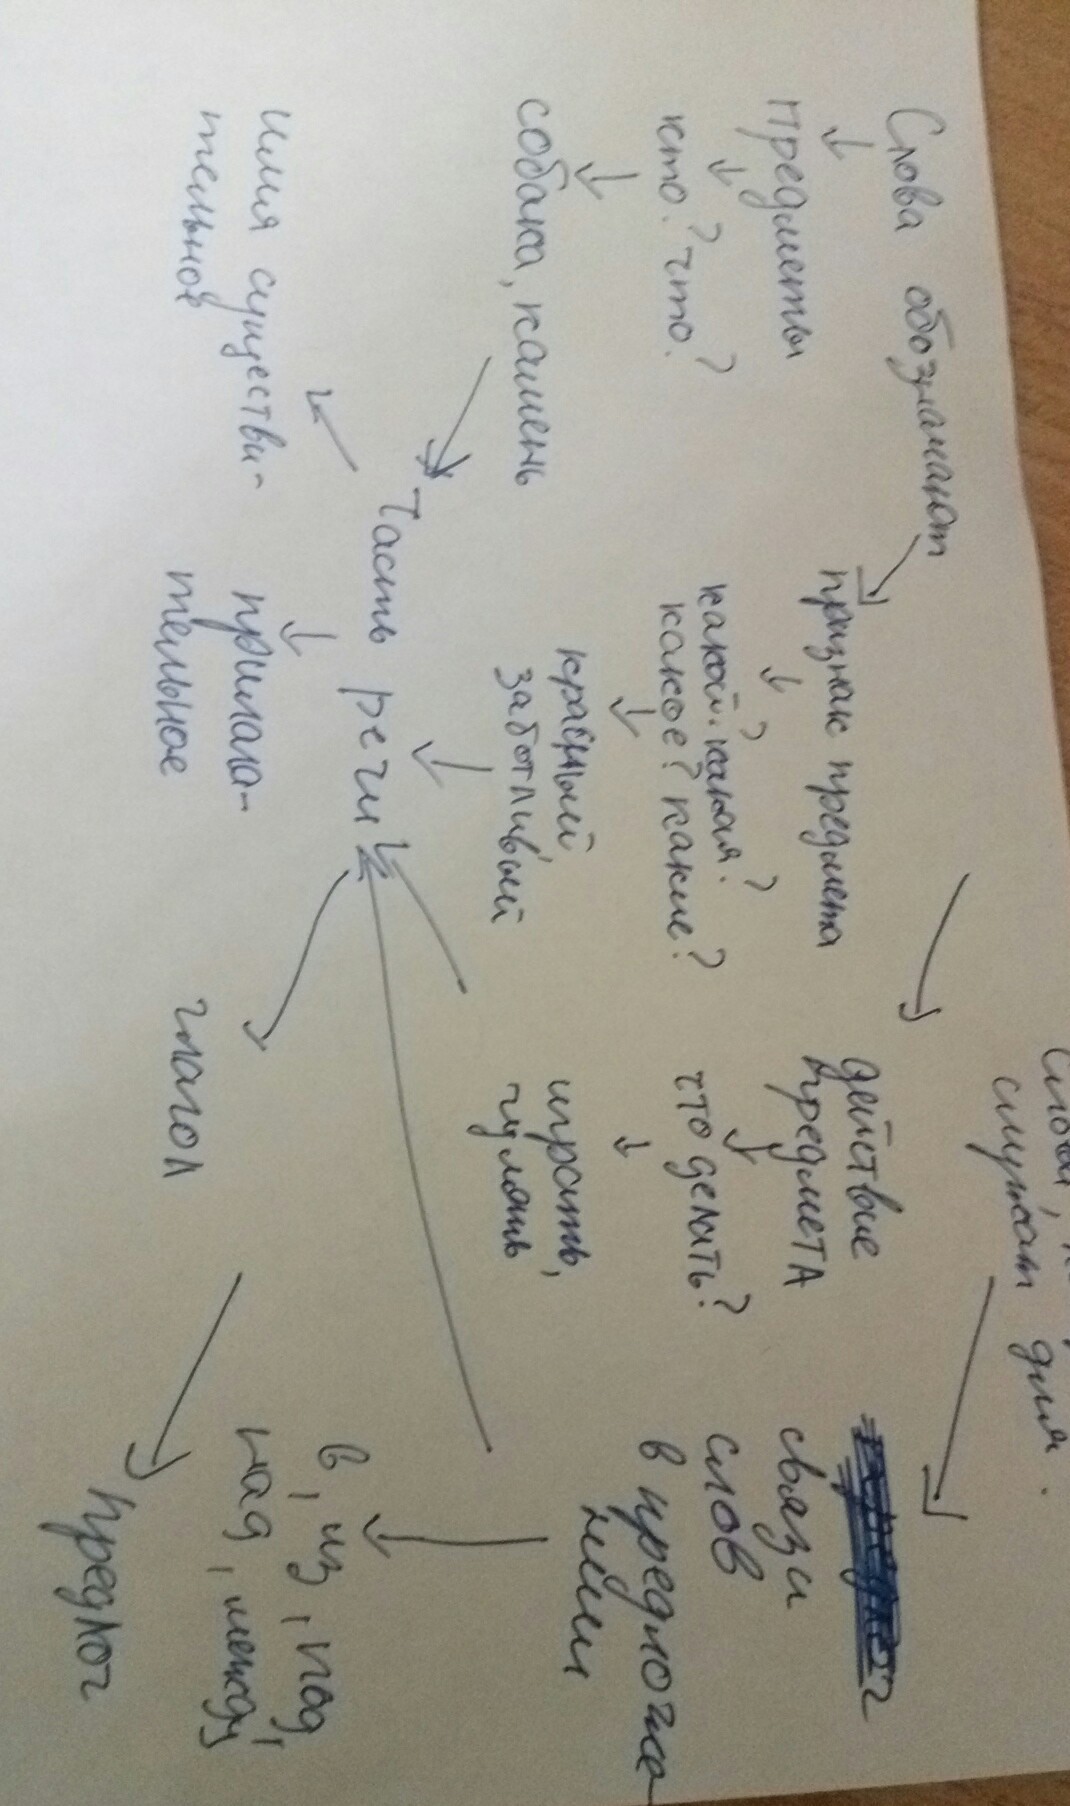 Слова обозначают
служат для
предметы
кто? что?
собака, камень
признак предмета
какой? какая?
какое? какие?
красный
заботливый
действие
предмета
что делать?
играть,
гулять
связи
слов
в предложе
нии
в, из, под,
над, между
Часть речи
имя существи-
тельное
прилага-
тельное
глагол
предлог